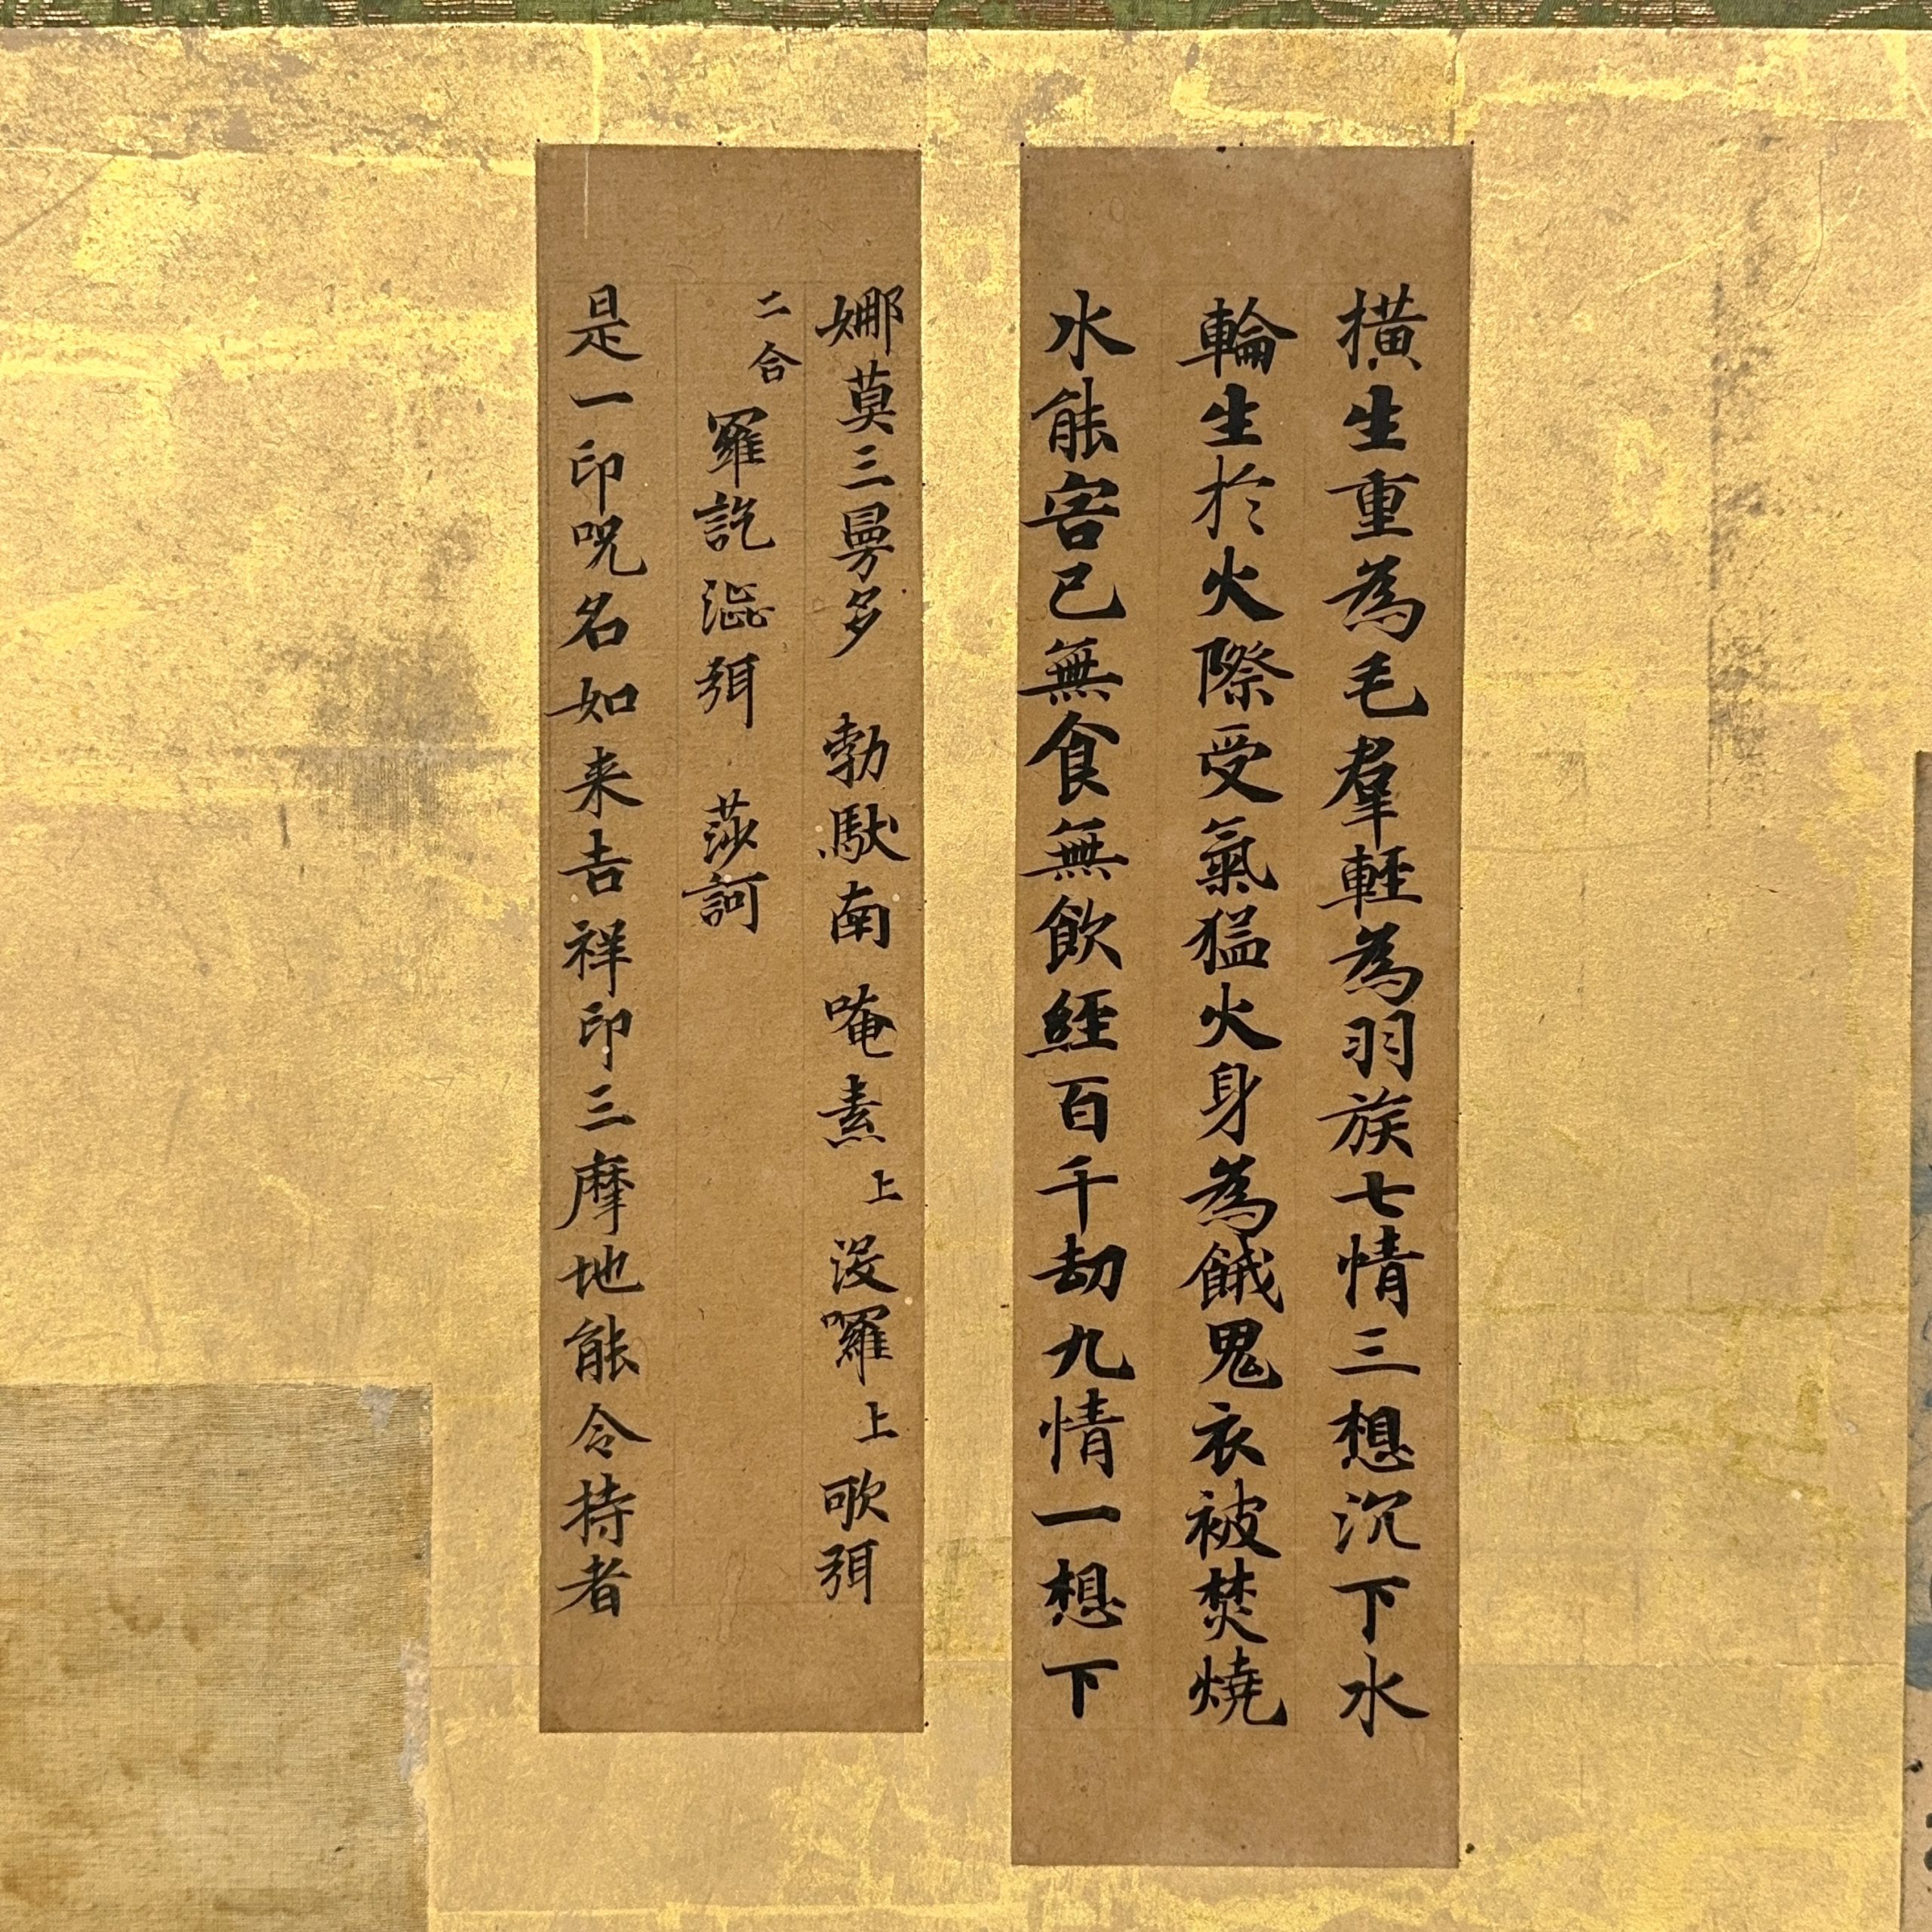 撗生重為毛羣輕為羽族七情三想沉下水
輪生於火際受氣猛火身為餓鬼衣被焚燒
水能害已無食無飲經百千劫九情一想下
娜莫三曼多 勃馱南 唵素上沒囉上歌弭
二合 羅訖澁弭 莎訶
是一印呪名如来吉祥印三摩地能令持者